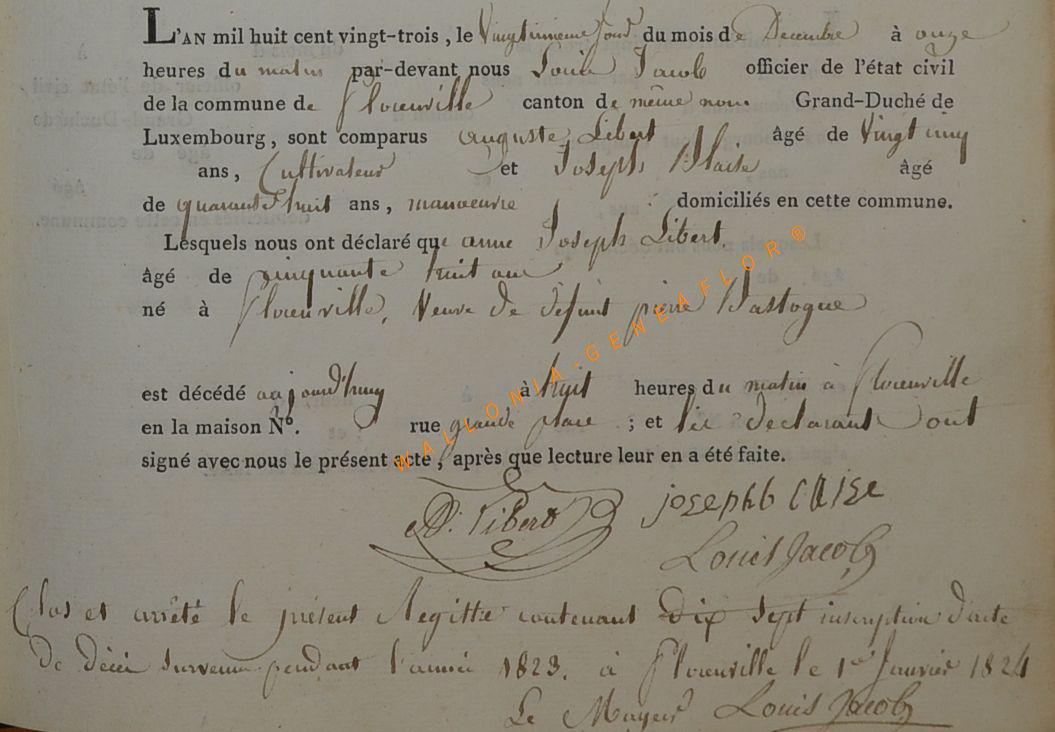 L'AN mil huit cent vingt-trois , le Vingtunieme jour du mois de Decembre à onze
heures du matin par-devant nous Louis Jacob officier de l'état civil
de la commune de florenville canton de même nom Grand-Duché de
Luxembourg, sont comparus auguste Libert âgé de Vingt cinq
ans, Cultivateur et Joseph Blaise âgé
de quarante huit ans, manoeuvre domiciliés en cette commune.
Lesquels nous ont déclaré que anne Joseph Libert.
âgé de cinquante huit ans
né à florenville, Veuve de défunt pierre Bastogne
est décédé aujourd'huy à huit heures du matin à florenville
en la maison Nº. rue grande place ; et les declarant ont
signé avec nous le présent acte, après que lecture leur en a été faite.
A. Libert josephb laise
Louis Jacob
Clos et arrêté le présent Registre contenant dix sept inscription d'acte
de décès survenu pendant l'année 1823. à florenville le 1er Janvier 1824
Le Mayeur Louis Jacob
WALLONIA-GENEAFLOR®